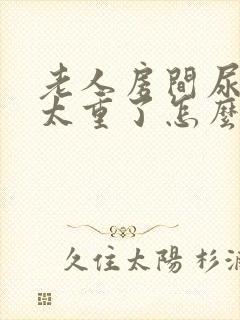 老人房間尿
太重了怎麼
久住太陽 杉